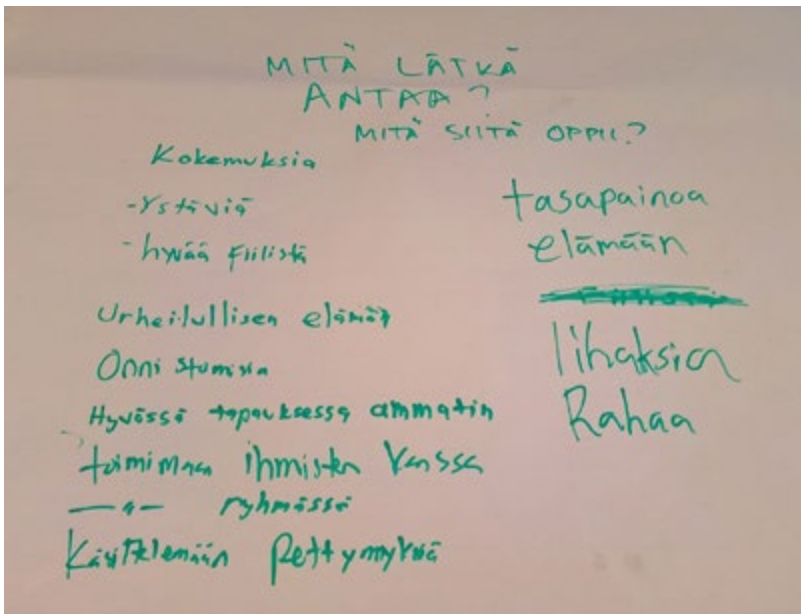 MITÄ LÄTKÄ
ANTAA?
MITÄ SIITÄ OPPII?
Kokemuksia
-Ystäviä
-hyvää fiilistä
Urheilullisen elämän
Onnistumisia
Hyvässä tapauksessa ammatin
toimimaan ihmisten kanssa
—"— ryhmässä
Käsittelemään pettymyksiä
tasapainoa
elämään
lihaksia
Rahaa